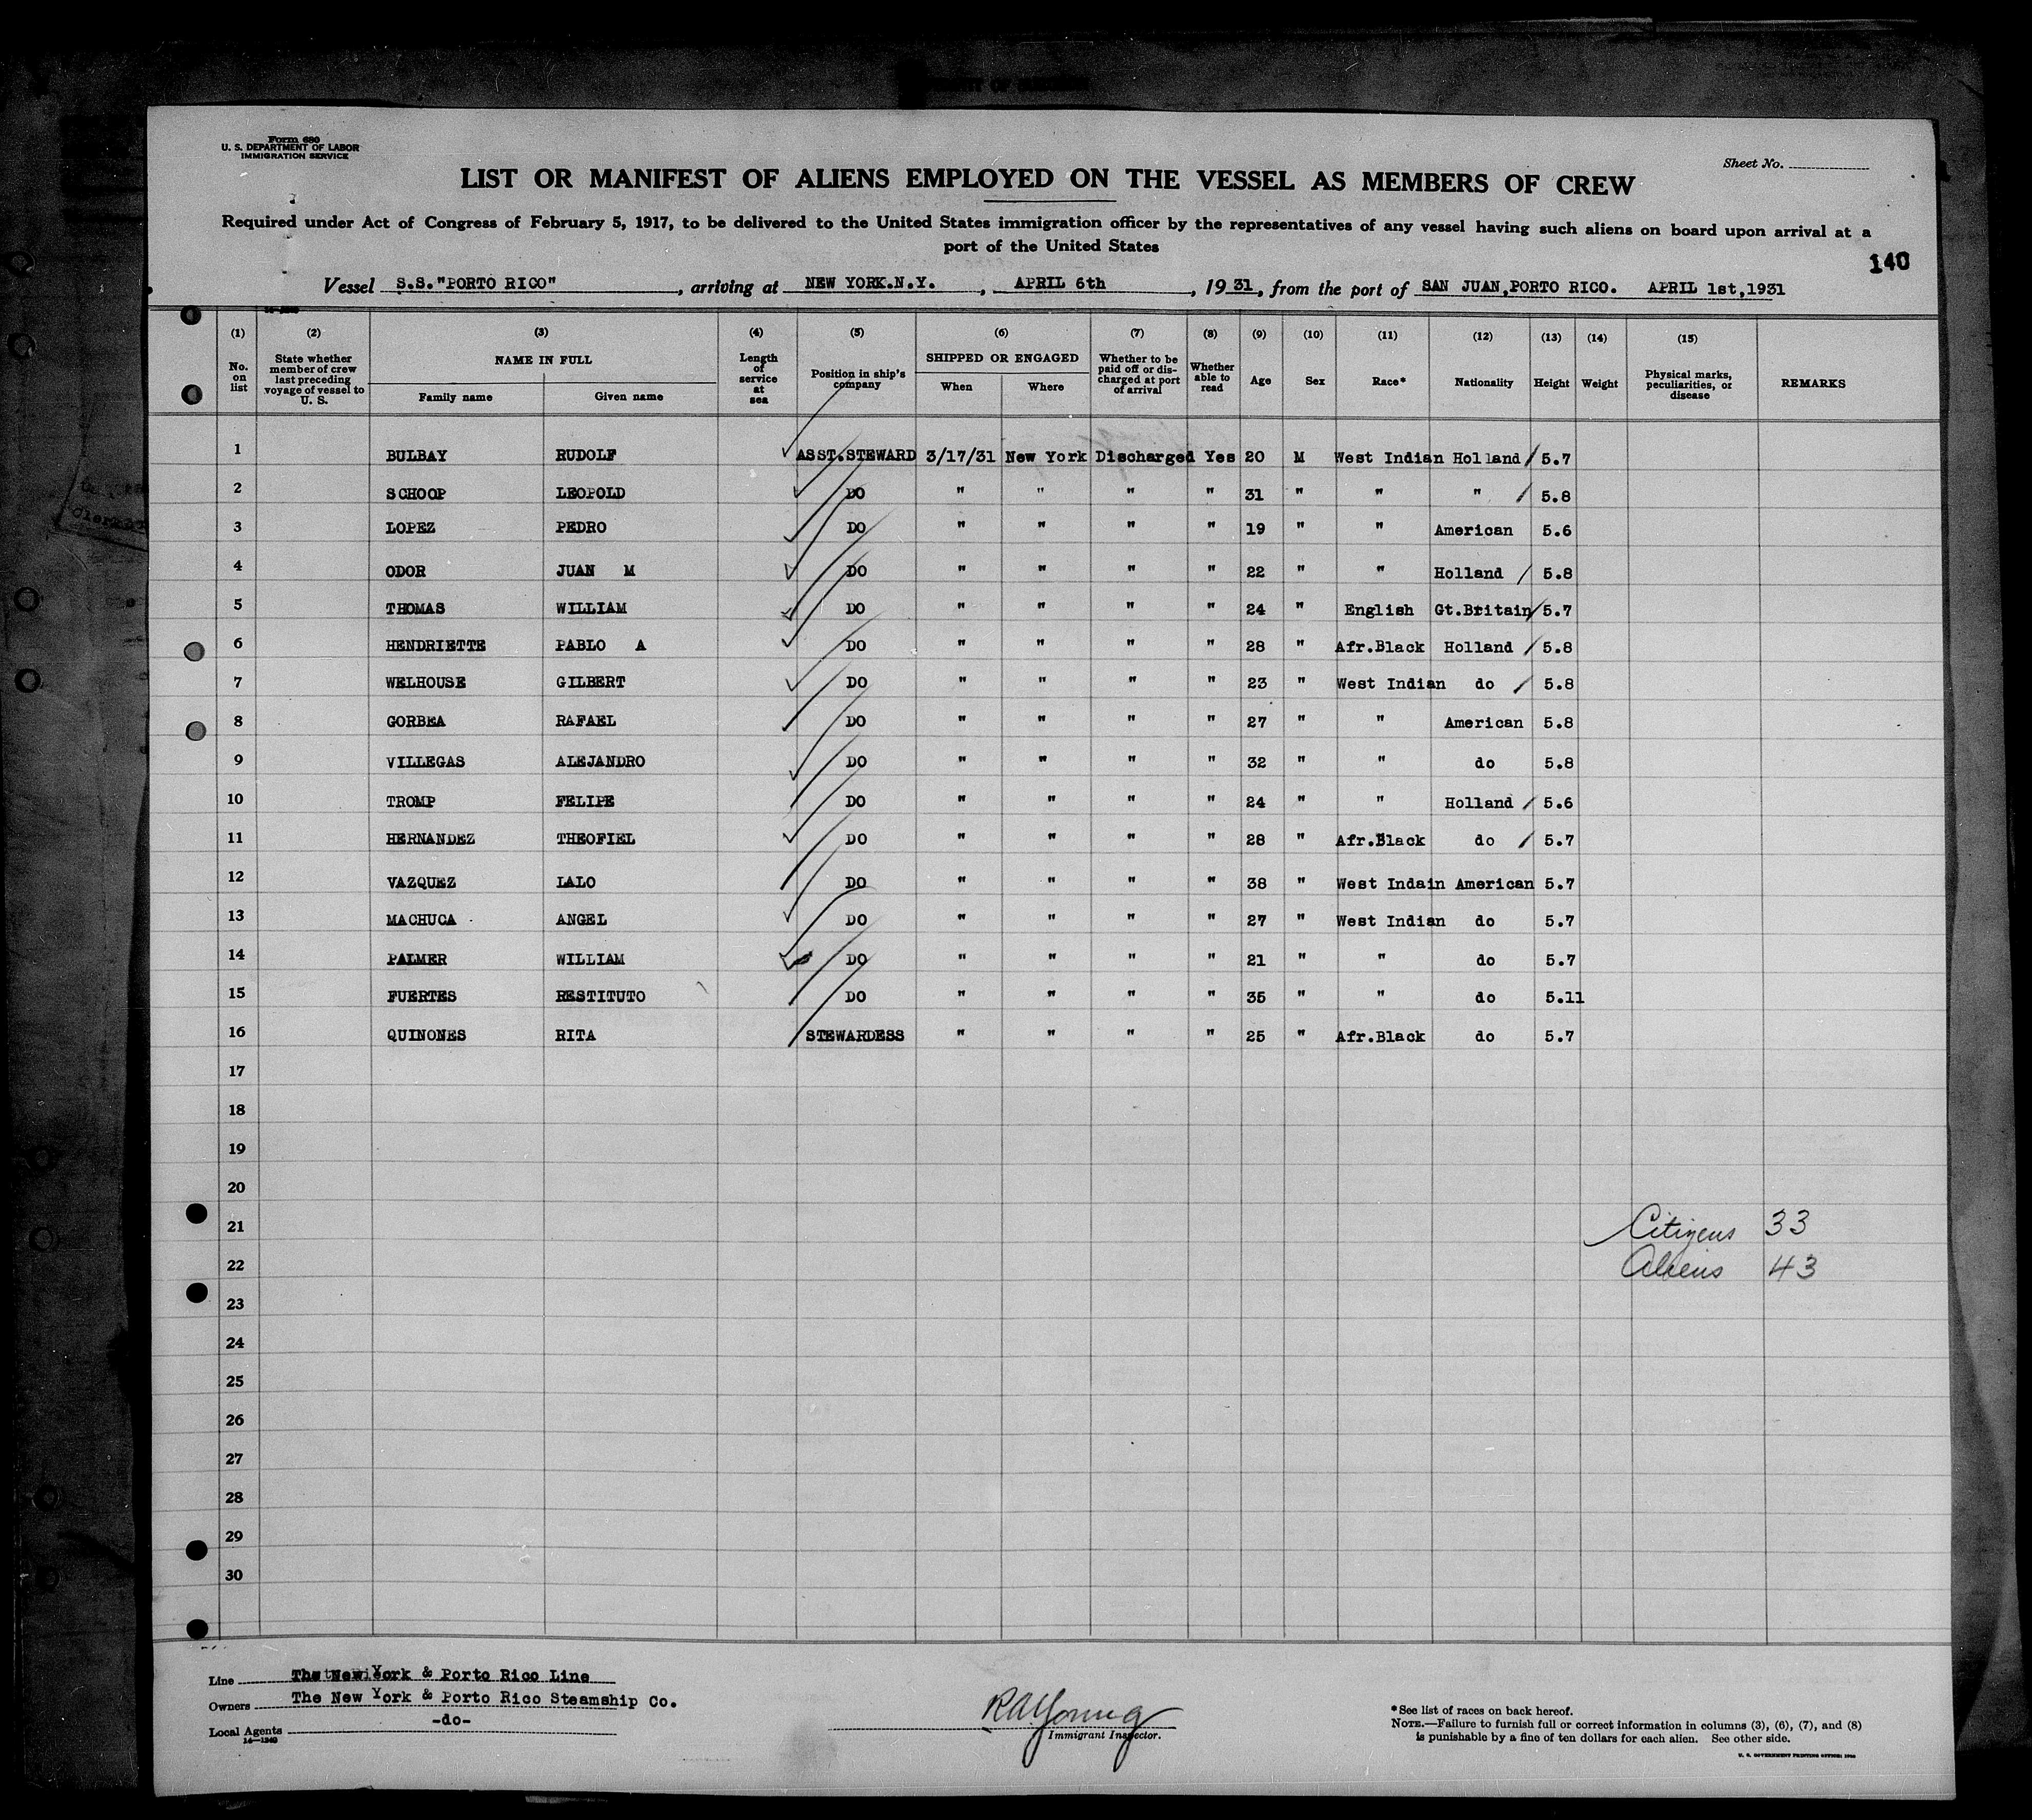 Form 680
U. S. DEPARTMENT OF LABOR
IMMIGRATION SERVICE
Sheet No.
LIST OR MANIFEST OF ALIENS EMPLOYED ON THE VESSEL AS MEMBERS OF CREW
Required under Act of Congress of February 5, 1917, to be delivered to the United States immigration officer by the representatives of any vessel having such aliens on board upon arrival at a
port of the United States
140
Vessel S.S."PORTO RICO", arriving at NEW YORK.N.Y., APRIL 6th, 1931, from the port of SAN JUAN,PORTO RICO. APRIL 1st,1931
(1) (2) (3) (4) (5) (6) (7) (8) (9) (10) (11) (12) (13) (14) (15)
No. on list State whether member of crew last preceding voyage of vessel to U. S. NAME IN FULL Family name Given name Length of service at sea Position in ship's company SHIPPED OR ENGAGED When Where Whether to be paid off or discharged at port of arrival Whether able to read Age Sex Race* Nationality Height Weight Physical marks, peculiarities, or disease REMARKS
1 BULBAY RUDOLF ASST.STEWARD 3/17/31 New York Discharged Yes 20 M West Indian Holland 5.7
2 SCHOOP LEOPOLD DO " " " " 31 " " " 5.8
3 LOPEZ PEDRO DO " " " " 19 " " American 5.6
4 ODOR JUAN M DO " " " " 22 " " Holland 5.8
5 THOMAS WILLIAM DO " " " " 24 " English Gt.Britain 5.7
6 HENDRIETTE PABLO A DO " " " " 28 " Afr.Black Holland 5.8
7 WELHOUSE GILBERT DO " " " " 23 " West Indian do 5.8
8 GORBEA RAFAEL DO " " " " 27 " " American 5.8
9 VILLEGAS ALEJANDRO DO " " " " 32 " " do 5.8
10 TROMP FELIPE DO " " " " 24 " " Holland 5.6
11 HERNANDEZ THEOFIEL DO " " " " 28 " Afr.Black do 5.7
12 VAZQUEZ LALO DO " " " " 38 " West Indain American 5.7
13 MACHUCA ANGEL DO " " " " 27 " West Indian do 5.7
14 PALMER WILLIAM DO " " " " 21 " " do 5.7
15 FUERTES RESTITUTO DO " " " " 35 " " do 5.11
16 QUINONES RITA STEWARDESS " " " " 25 " Afr.Black do 5.7
17
18
19
20
21 Citizens 33
22 Aliens 43
23
24
25
26
27
28
29
30
Line The New York & Porto Rico Line
Owners The New York & Porto Rico Steamship Co.
Local Agents -do-
14-1240
RAYoung
Immigrant Inspector.
*See list of races on back hereof.
NOTE.—Failure to furnish full or correct information in columns (3), (6), (7), and (8)
is punishable by a fine of ten dollars for each alien. See other side.
U. S. GOVERNMENT PRINTING OFFICE: